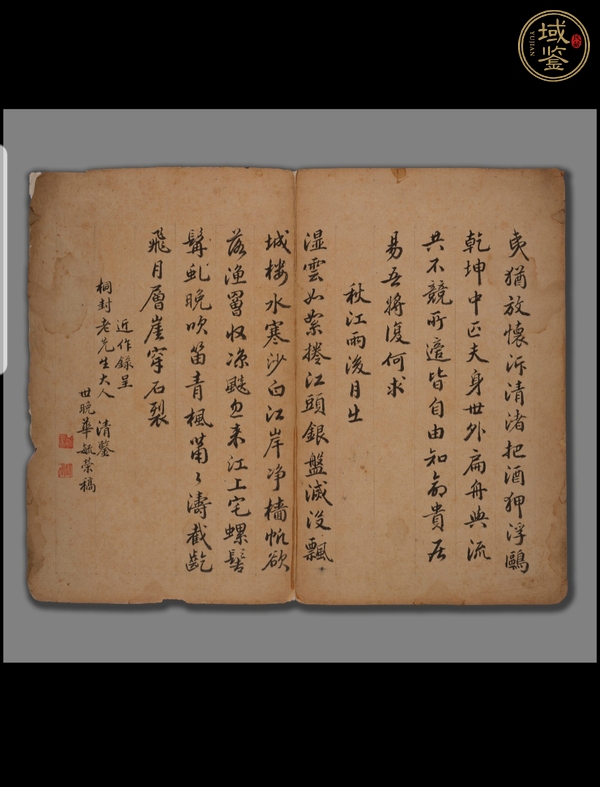 域鉴
YUJIAN
夷猶放懷泝清渚把酒狎浮鷗
乾坤中正夫身世外扁舟與流
共不競所適皆自由知命貴居
易吾將復何求
秋江雨後月出
湿雲如絮捲江頭銀盤滅没飄
城楼水寒沙白江岸净檣帆欲
落漁罾收凉飈忽来江上宅螺髻
髯虬晚吹笛青楓蕭々濤截龁
飛月層崖穿石裂
近作錄呈
桐封老先生大人 清鑒
世晚華毓榮稿